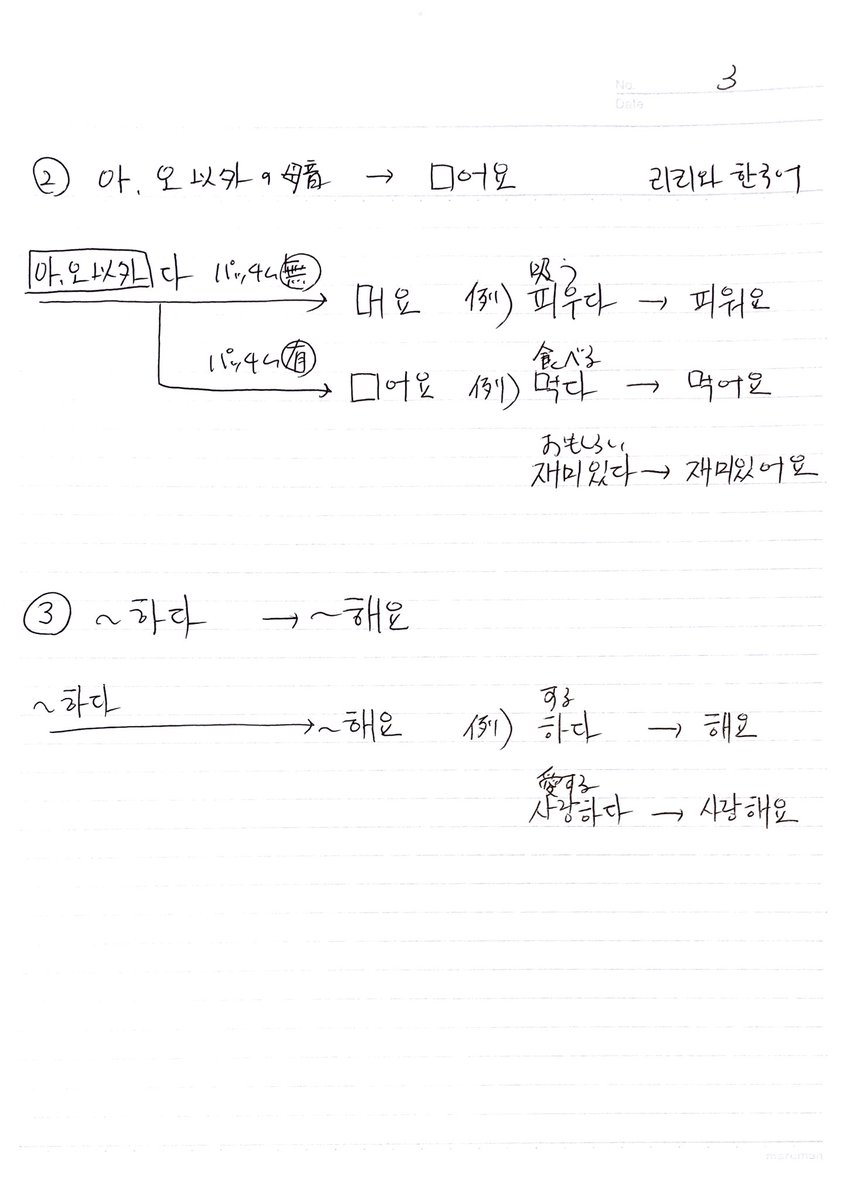 No. 3
Date
② 아, 오 以外の母音 → □어요 리리와 한국어
아, 오 以外 다 パッチム無 → □ㅓ요 例) 吸う 피우다 → 피워요
パッチム有 → □어요 例) 食べる 먹다 → 먹어요
おもしろい 재미있다 → 재미있어요
③ ~하다 → ~해요
~하다 → ~해요 例) する 하다 → 해요
愛する 사랑하다 → 사랑해요
maruman